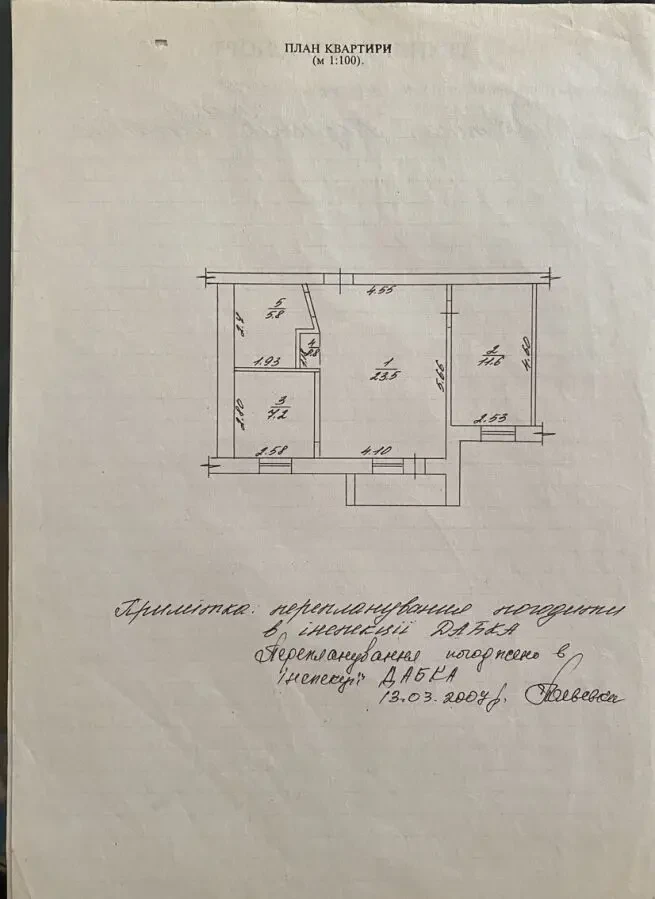 ПЛАН КВАРТИРИ
(м 1:100).
4.55
5
5.8
2.4
4
0.8
1.93
1
23.5
5.65
2
11.6
4.60
3
7.2
2.80
2.53
2.58
4.10
Примітка: перепланування погодити
в інспекції ДАБКА
Перепланування погоджено в
інспекції ДАБКА
13.03.2007р.